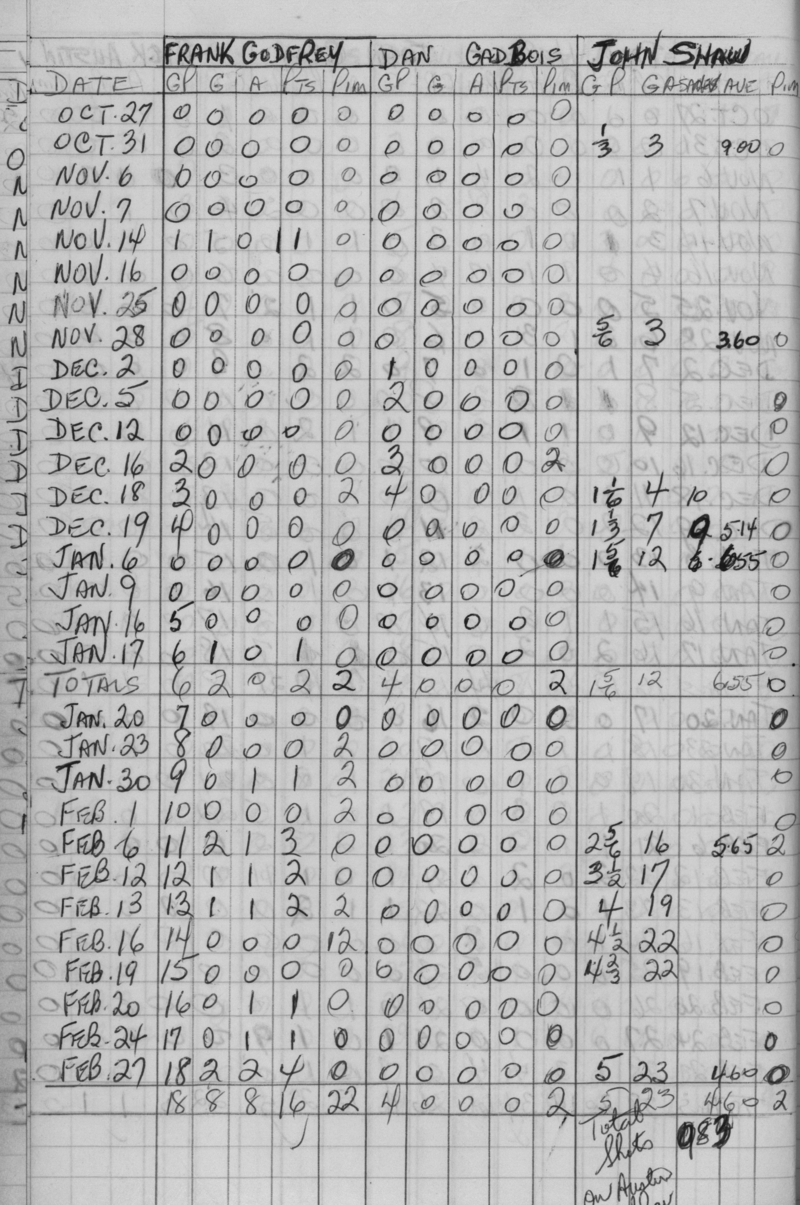 FRANK GODFREY DAN GADBOIS JOHN SHAW
DATE GP G A PTS PIM GP G A PTS PIM GP GA AVE PIM
OCT. 27 0 0 0 0 0 0 0 0 0 0
OCT. 31 0 0 0 0 0 0 0 0 0 0 1/3 3 9.00 0
NOV. 6 0 0 0 0 0 0 0 0 0 0
NOV. 7 0 0 0 0 0 0 0 0 0 0
NOV. 14 1 1 0 1 0 0 0 0 0 0
NOV. 16 0 0 0 0 0 0 0 0 0 0
NOV. 25 0 0 0 0 0 0 0 0 0 0
NOV. 28 0 0 0 0 0 0 0 0 0 0 5/6 3 3.60 0
DEC. 2 0 0 0 0 0 1 0 0 0 0
DEC. 5 0 0 0 0 0 2 0 0 0 0 0
DEC. 12 0 0 0 0 0 0 0 0 0 0 0
DEC. 16 2 0 0 0 0 3 0 0 0 2 0
DEC. 18 3 0 0 0 2 4 0 0 0 0 1 1/6 4 10 0
DEC. 19 4 0 0 0 0 0 0 0 0 0 1 1/3 7 9 5.14 0
JAN. 6 0 0 0 0 0 0 0 0 0 0 1 5/6 12 6.55 0
JAN. 9 0 0 0 0 0 0 0 0 0 0 0
JAN. 16 5 0 0 0 0 0 0 0 0 0 0
JAN. 17 6 1 0 1 0 0 0 0 0 0 0
TOTALS 6 2 0 2 2 4 0 0 0 2 1 5/6 12 6.55 0
JAN. 20 7 0 0 0 0 0 0 0 0 0 0
JAN. 23 8 0 0 0 2 0 0 0 0 0 0
JAN. 30 9 0 1 1 2 0 0 0 0 0 0
FEB. 1 10 0 0 0 2 0 0 0 0 0 0
FEB 6 11 2 1 3 0 0 0 0 0 0 2 5/6 16 5.65 2
FEB. 12 12 1 1 2 0 0 0 0 0 0 3 1/2 17 0
FEB. 13 13 1 1 2 2 0 0 0 0 0 4 19 0
FEB. 16 14 0 0 0 12 0 0 0 0 0 4 1/2 22 0
FEB. 19 15 0 0 0 0 0 0 0 0 0 4 2/3 22 0
FEB. 20 16 0 1 1 0 0 0 0 0 0 0
FEB. 24 17 0 1 1 0 0 0 0 0 0 0
FEB. 27 18 2 2 4 0 0 0 0 0 0 5 23 4.60 0
18 8 8 16 22 4 0 0 0 2 5 23 4.60 2
Total
Shots 983
on Austin